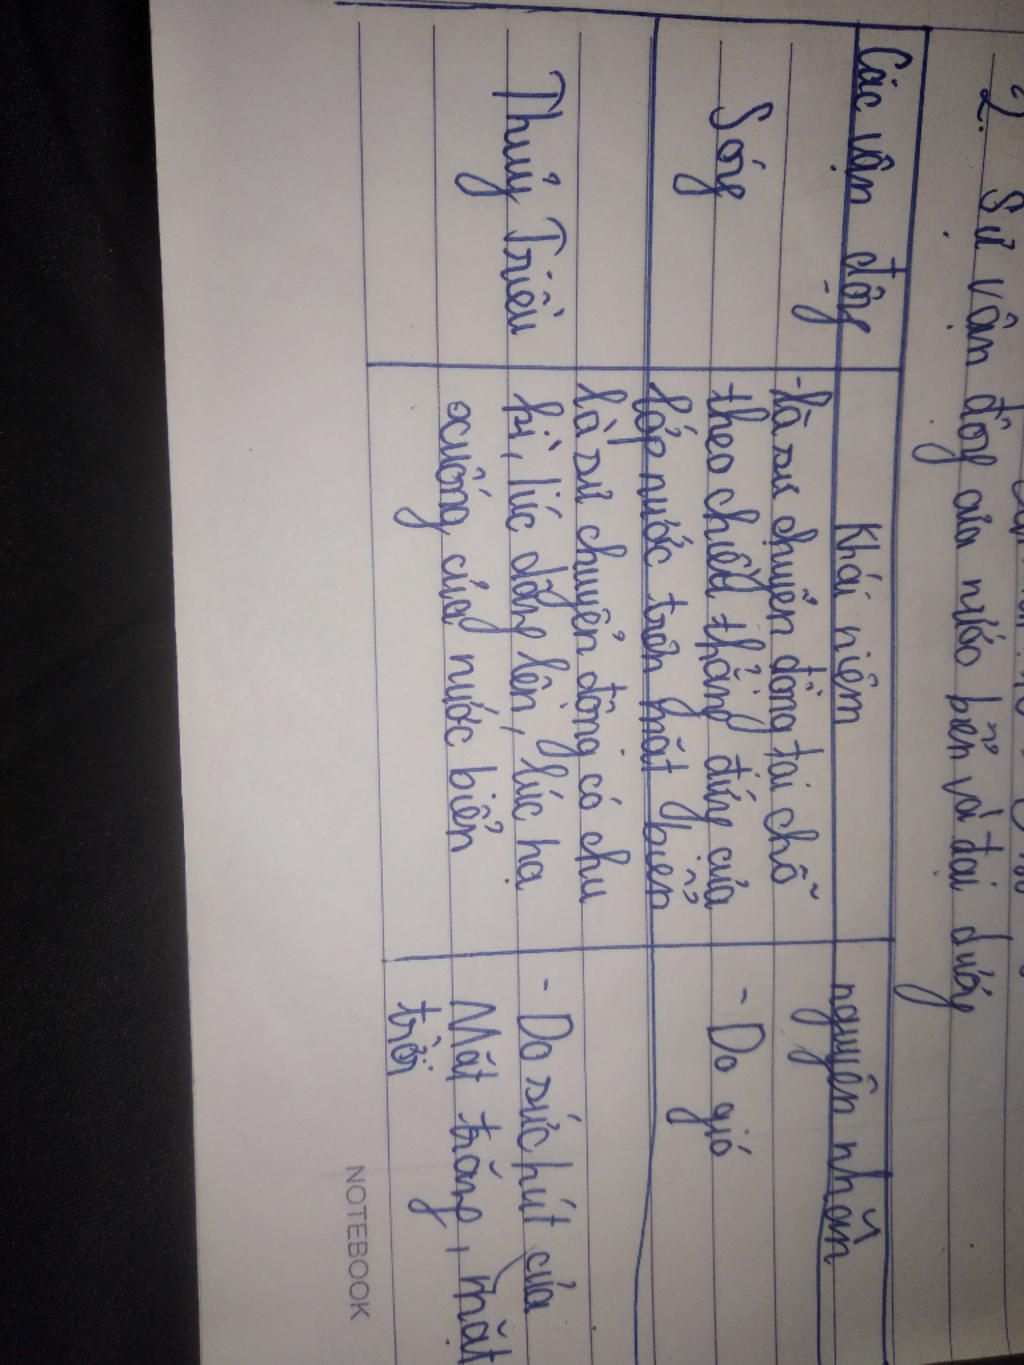 2. Sự vận động của nước biển và đại dương
Các vận động
Khái niệm
nguyên nhân
Sóng
-là sự chuyển động tại chỗ
theo chiều thẳng đứng của
lớp nước trên mặt biển
- Do gió
Thuỷ Triều
là sự chuyển động có chu
kì, lúc dâng lên, lúc hạ
xuống của nước biển
- Do sức hút của
Mặt trăng, mặt
trời
NOTEBOOK